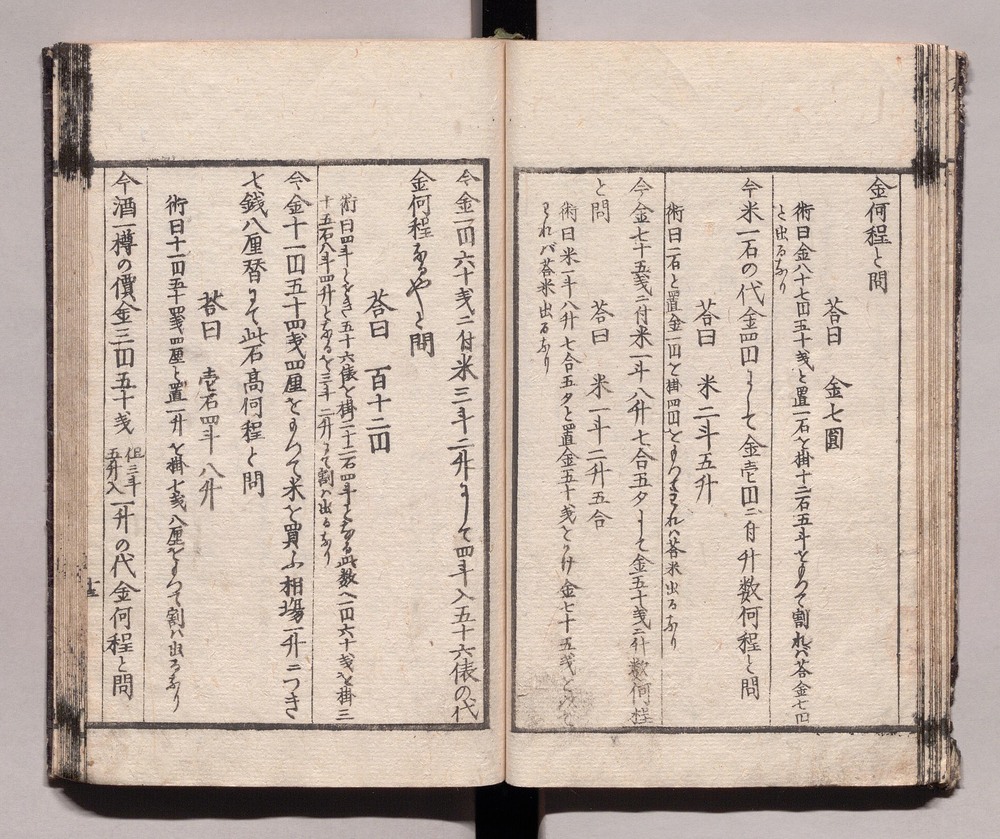 金何程と問
答曰　金七圓
術曰金八十七円五十戔と置一石を掛十二石五斗をもつて割れバ答金七円
と出るなり
今米一石の代金四円にして金壱円ニ付升数何程と問
答曰　米二斗五升
術曰一石と置金一円を掛四円をもつてわれハ答米出るなり
今金七十五戔ニ付米一斗八升七合五夕にして金五十戔ニ付数何程
と問
答曰　米一斗二升五合
術曰米一斗八升七合五夕と置金五十戔とかけ金七十五戔をもつて
われバ答米出るなり
今金一円六十戔ニ付米三斗二升にして四斗入五十六俵の代
金何程なるやと問
答曰　百十二円
術曰四斗とをき五十六俵を掛二十二石四斗となる此数へ一円六十戔を掛三
十五石八斗四升となるを三斗二升にて割ハ出るなり
今金十一円五十四戔四厘をもつて米を買ふ相場一升ニつき
七銭八厘替にて此石高何程と問
答曰　壱石四斗八升
術曰十一円五十四戔四厘と置一升を掛七戔八厘をもつて割ハ出るなり
今酒一樽の價金三円五十戔　但三斗
五升入　一升の代金何程と問